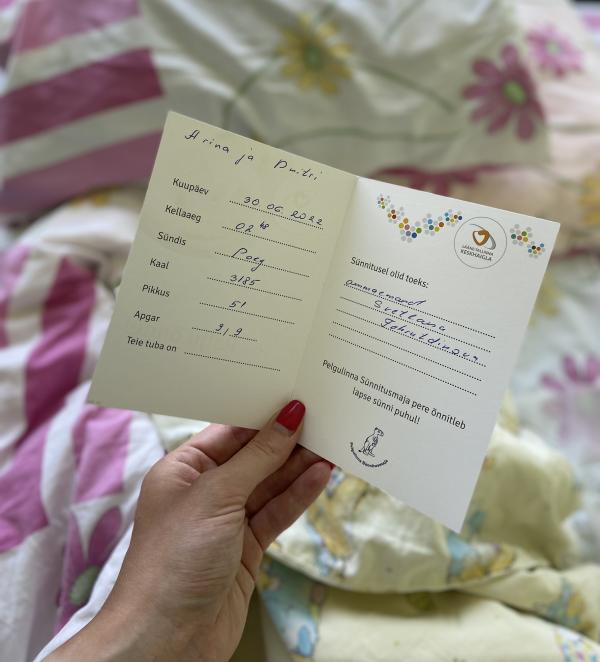 Arina ja Dmitri
Kuupäev 30.06.2022
Kellaaeg 02 48
Sündis Poeg
Kaal 3185
Pikkus 51
Apgar 9/9
Teie tuba on
LÄÄNE-TALLINNA
KESKHAIGLA
Sünnitusel olid toeks:
ämmaemand
Svetlana
Pelgulinna Sünnitusmaja pere õnnitleb
lapse sünni puhul!
Pelgulinna Sünnitusmaja